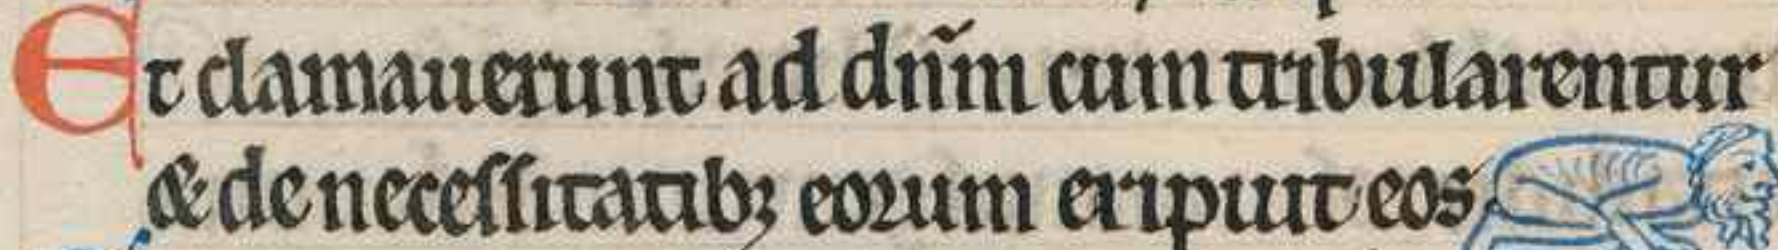 Et clamauerunt ad dñm cum tribularentur
& de necessitatibꝫ eorum eripuit eos